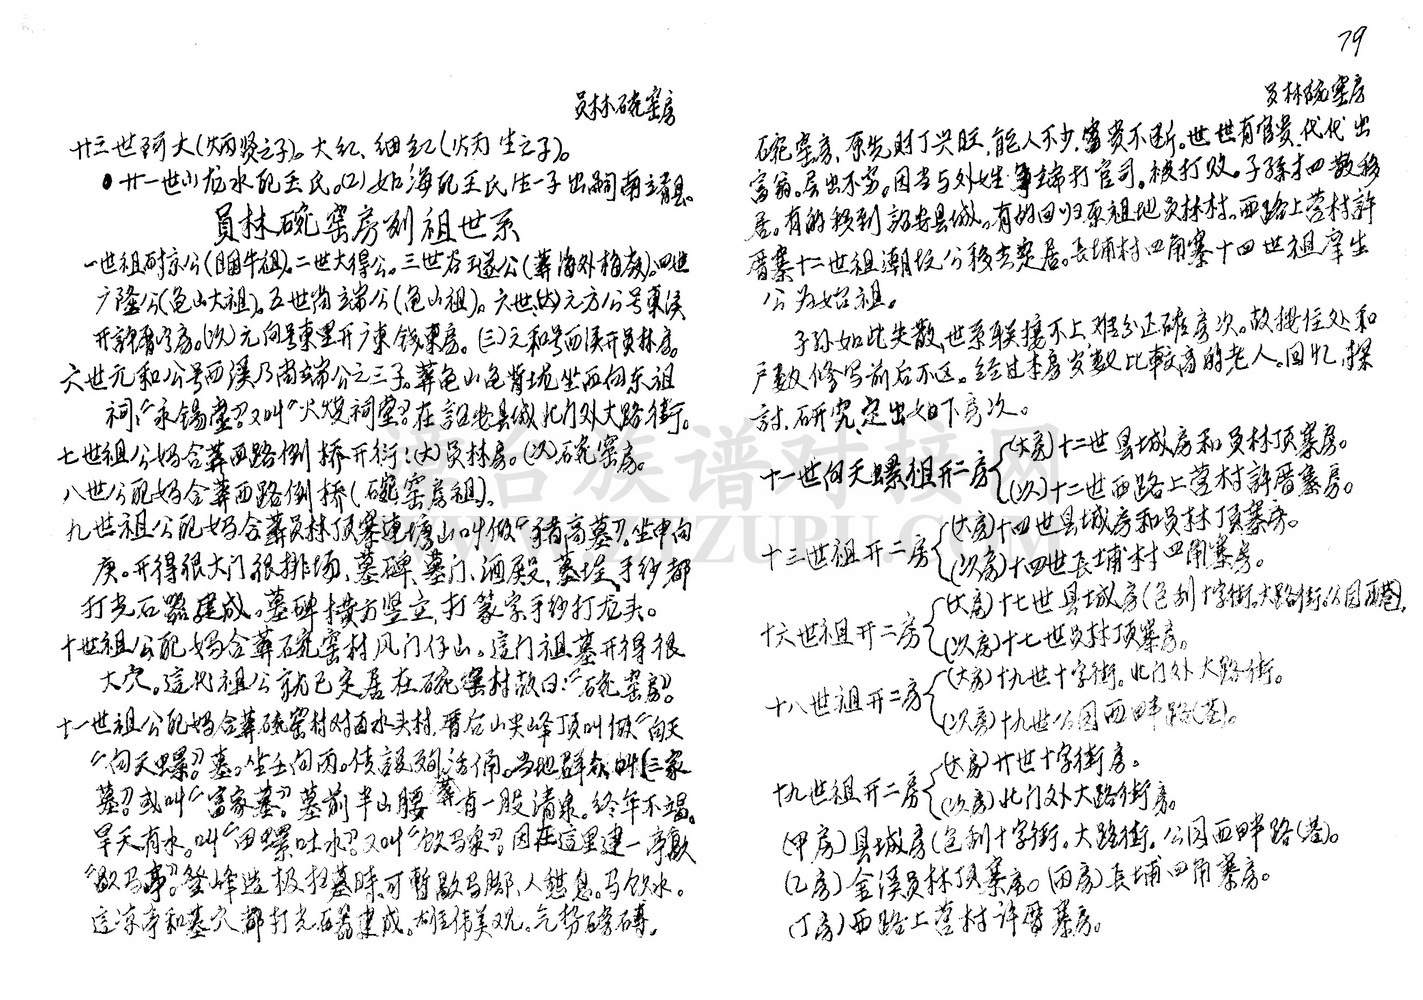 79
员林碗窑房
廿三世阿大(炳贤之子)。大红、细红(炳生之子)。
廿一世山龙水配王氏。(2)如海配王氏生一子出嗣南靖县。
員林碗窑房列祖世系
一世祖耐京公(眠牛祖)。二世大得公。三世谷遂公(葬海外)。四世
广隆公(龟山大祖)。五世尚端公(龟山祖)。六世(大)元方公号東溪
开許厝房。(次)元向号東里开广東钱東房。(三)元和号西溪开员林房。
六世元和公号西溪乃南端公之三子。葬龟山龟背坐西向东祖
祠:“永锡堂”又叫“火烧祠堂”在詔安县城北门外大路街。
七世祖公妈合葬西路倒桥开衍:(大)员林房。(次)碗窑房。
八世公配妈合葬西路倒桥(碗窑房祖)。
九世祖公配妈合葬员林顶寨連塘山叫做“猪高墓”。坐申向
庚。开得很大门很排场、墓碑、墓门、酒殿、墓埕、手纱都
打光石器建成。墓碑横方竖立,打篆字手纱打龙头。
十世祖公配妈合葬碗窑村风门仔山。這门祖墓开得很
大穴。這代祖公就已定居在碗窑村故曰:“碗窑房”。
十一世祖公配妈合葬碗窑村对面水头村,厝后山尖峰顶叫做“向天
“向天螺”墓。坐壬向丙。传設殉活俑。当地群众叫三家
墓”或叫“富家墓”。墓前半山腰葬有一股清泉。终年不竭。
旱天有水。叫“田螺吐水”又叫“饮马泉”因在這里建一亭歇
“歇马亭”。登峰造极扫墓時,可暫歇马脚,人憩息。马饮水。
這凉亭和墓穴都打光石器建成。雄伟美观。气势磅礴。
员林碗窑房
碗窑房,原先财丁兴旺,能人不少,富贵不断。世世有官贵,代代出
富翁。层出不穷。因当与外姓争端打官司。被打败。子孫才四散移
居。有的移到詔安县城。有的回归原祖地员林村。西路上营村許
厝寨十二世祖潮坑公移去定居。長埔村四角寨十四世祖摩生
公为始祖。
子孙如此失散,世系联接不上,难分正確房次。故按住处和
严数修写前后不达。经过本房岁数比較高的老人。回忆,探
討,研究,定出如下房次。
十一世向天螺祖开二房
(大房)十二世县城房和员林顶寨房。
(次)十二世西路上营村許厝寨房。
十三世祖开二房
(大房)十四世县城房和员林顶寨房。
(次房)十四世長埔村四角寨房。
十六世祖开二房
(大房)十七世县城房(包刮十字街。大路街。公园西巷)
(次房)十七世员林顶寨房。
十八世祖开二房
(大房)十九世十字街。北门外大路街。
(次房)十九世公园西畔路(巷)。
十九世祖开二房
(大房)廿世十字街房。
(次房)北门外大路街房。
(甲房)县城房(包刮十字街。大路街。公园西畔路(巷)。
(乙房)金溪员林顶寨房。(丙房)長埔四角寨房。
(丁房)西路上营村許厝寨房。
台族谱对接网
WWW.ZTZUPU.COM